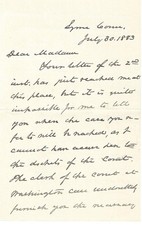 Lyme Conn.
July 30. 1883
Dear Madam
Your letter of the 2nd
inst. has just reached me at
this place, but it is quite
impossible for me to tell
you when the case you re-
fer to will be reached, as I
cannot have access here to
the dockets of the Court.
The clerk of the court at
Washington can undoubtedly
furnish you the necessary